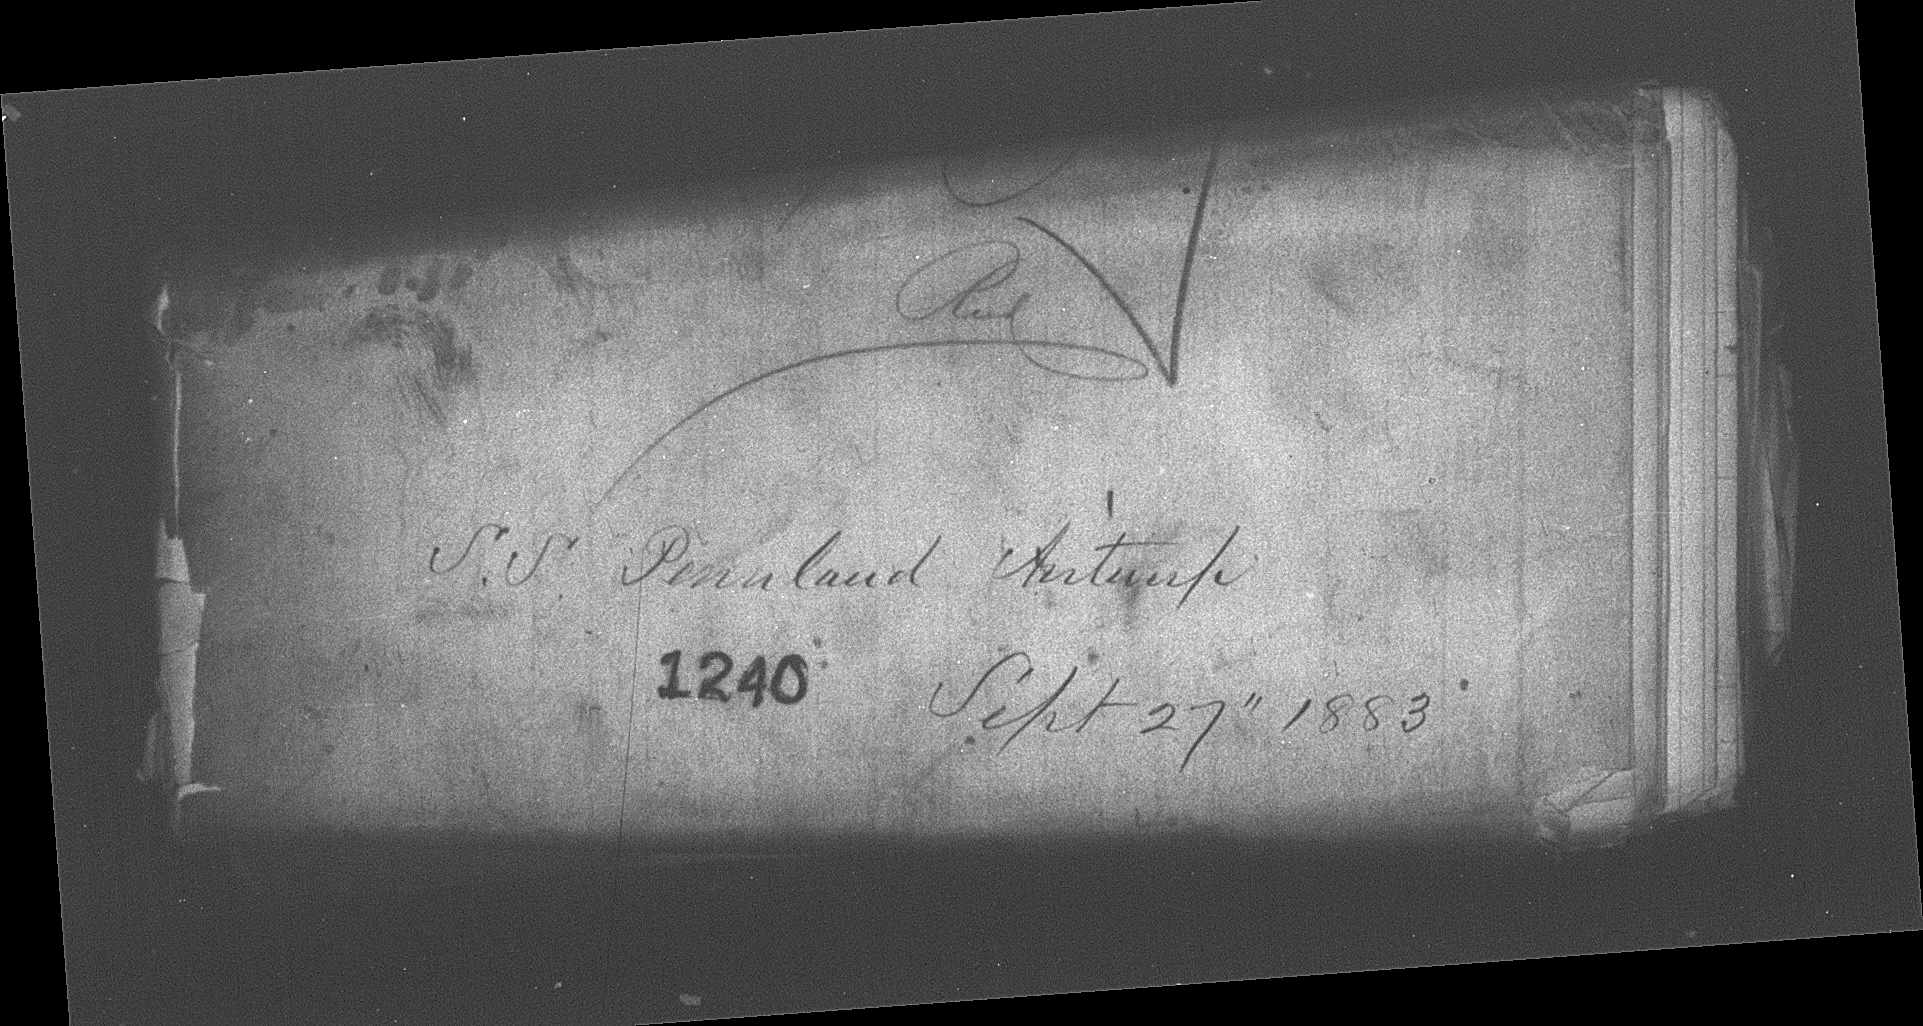 S.S. Pennland Antwerp
1240
Sept 27" 1883